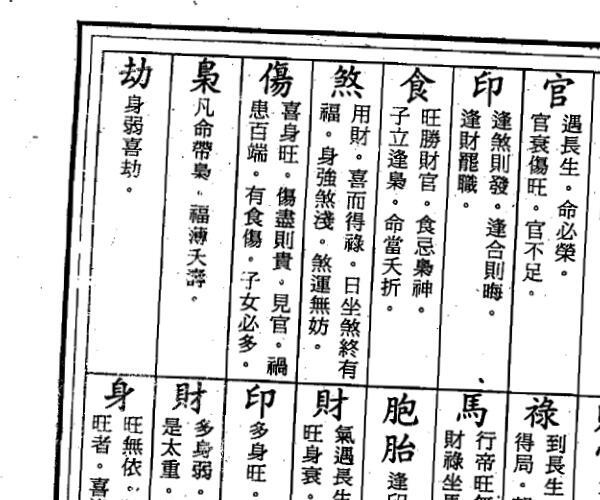 官
遇長生。命必榮。
官衰傷旺。官不足。
印
逢煞則發。逢合則晦。
逢財罷職。
食
旺勝財官。食忌梟神。
子立逢梟。命當夭折。
煞
用財。喜而得祿。日坐煞終有
福。身強煞淺。煞運無妨。
傷
喜身旺。傷盡則貴。見官。禍
患百端。有食傷。子女必多。
梟
凡命帶梟。福薄夭壽。
劫
身弱喜劫。
祿
到長生
得局。
馬
行帝旺
財祿坐馬
胞胎
逢印
財
氣遇長生
旺身衰。
印
多身旺。
財
多身弱。
是太重。
身
旺無依。
旺者。喜